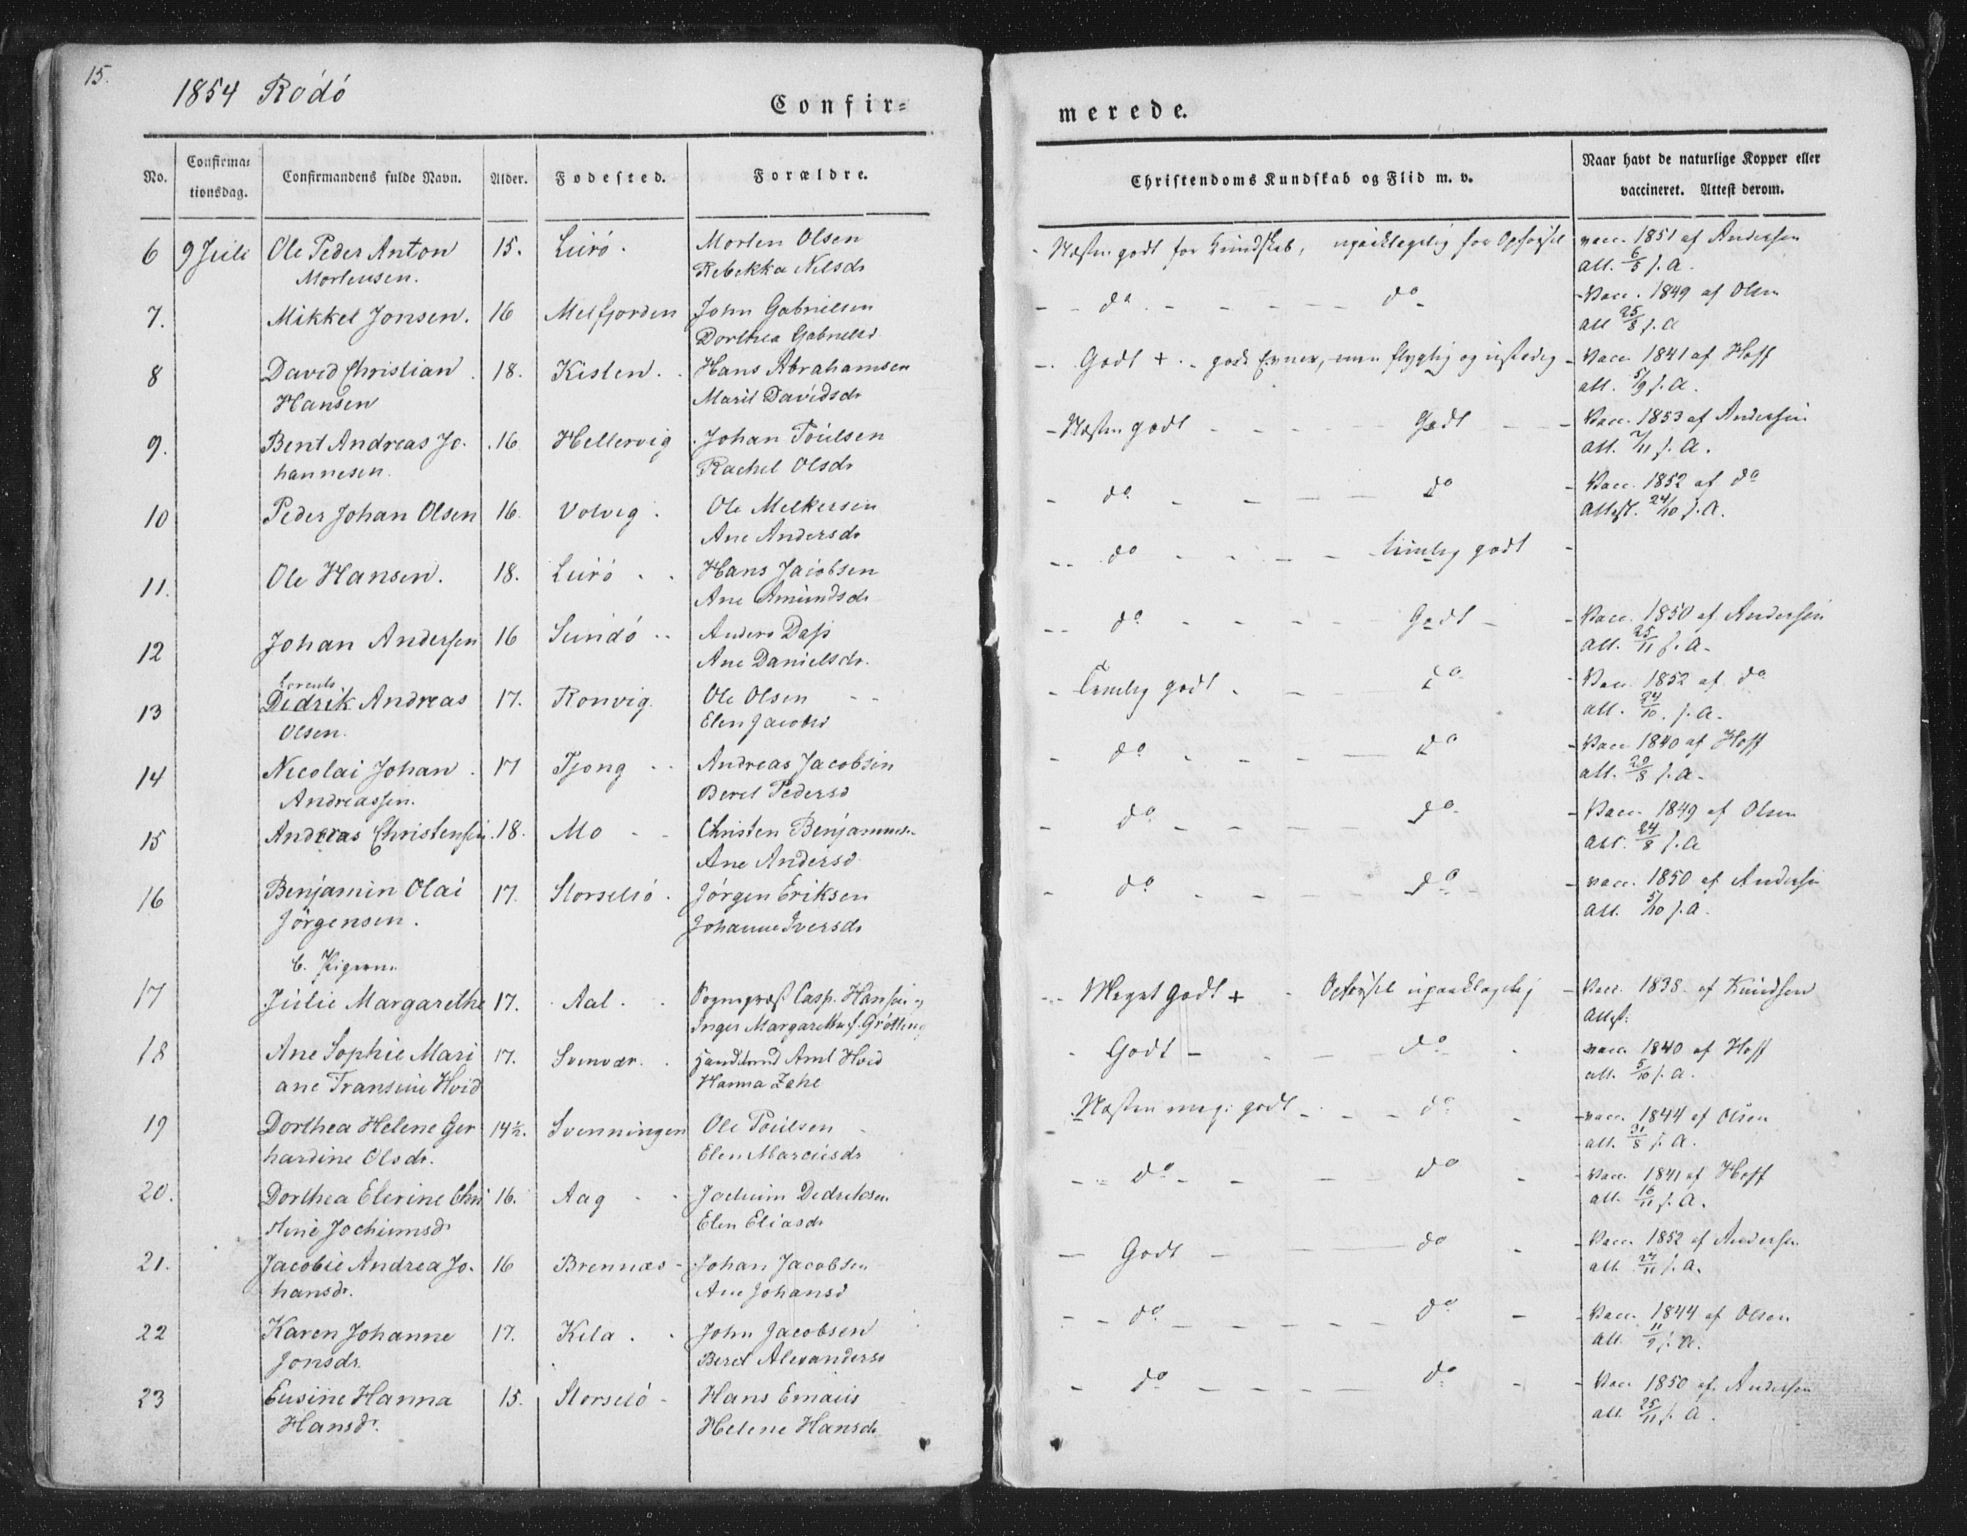 15.
1854 Rødø
Confir=
merede.
No.
Confirma=
tionsdag.
Confirmandens fulde Navn.
Alder.
Fødested.
Forældre.
Christendoms Kundskab og Flid m. v.
Naar havt de naturlige Kopper eller
vaccineret. Attest derom.
6 9 Juli Ole Peder Anton 15. Lurö. Morten Olsen Næsten godt for Kundskab, upaaklagelig for Opførsel vacc. 1851 af Andersen
Mortensen. Rebekka Nilsdr att. 6/5 s. A.
7. Mikkel Jonsen. 16 Melfjorden John Gabrielsen do do Vacc. 1849 af Olsen
Dorthea Gabrielsd att 25/8 s. A
8 David Christian 18. Kisten. Hans Abrahamsen Godt + gode Evner, men flygtig og ustadig Vacc. 1841 af Hoff
Hansen Marit Davidsdr att. 5/9 s. A.
9. Bent Andreas Jo- 16. Hellervig Johan Poulsen Næsten godt Godt Vacc. 1853 af Andersen
hannesen. Rachel Olsdr att. 7/11 s. A.
10 Peder Johan Olsen 16. Volvig. Ole Melkersen do do Vacc. 1852 af do
Ane Andersdr Attest. 24/10 s. A.
11. Ole Hansen. 18. Lurö Hans Jacobsen do temlig godt
Ane Amundsdr
12 Johan Andersen 16 Sundö Anders Dass do Godt Vacc. 1850 af Andersen
Ane Danielsdr. att. 25/11 s. A.
Lorents
13 Didrik Andreas 17. Ronvig. Ole Olsen Temlig godt do Vacc. 1852 af do
Olsen. Elen Jacobsd att. 24/10. s. A.
14 Nicolai Johan 17 Tjong Andreas Jacobsen do do Vacc. 1840 af Hoff
Andreassen. Beret Pedersd att. 29/8 s. A.
15 Andreas Christensen 18. Mo Christen Benjaminsn do do Vacc. 1849 af Olsen
Ane Andersd. att. 24/8 s. A
16 Benjamin Olai 17. Storselsö Jörgen Eriksen do do vacc. 1850 af Andersen
Jörgensen. Johanne Iversdr att. 5/10 s. A.
b. Pigerne
17 Julie Margarethe 17. Aal. Sogneprest Casp. Hansen og Meget Godt + Opførsel upaaklagelig Vacc. 1838 af Knudsen
Inger Margarethe f. Grötting Attest.
18 Ane Sophie Mari 17. Svinvær. Handelsmd Amt Hvid Godt do vacc. 1840 af Hoff
ane Fransine Hvid Hanna Zahl att. 5/10 s. A.
19 Dorthea Helene Ger 14½. Svenningen Ole Poulsen Næsten meg. godt do vacc. 1844 af Olsen
hardine Olsdr. Elen Marcusdr att. 31/8 s. A.
20. Dorthea Elerine Chri 16. Aag Jochum Dedriksen do do Vacc. 1841 af Hoff
stine Jochumsdr Elen Eliasdr att. 16/11 s. A.
21. Jacobie Andrea Jo- 16 Brennæs Johan Jacobsen Godt do Vacc. 1852 af Andersen
hansdr. Ane Johansd att. 24/11 s. A.
22 Karen Johanne 17. Kila. John Jacobsen do do Vacc. 1844 af Olsen
Jonsdr. Beret Alexandersd att. 11/9 s. A.
23 Eusine Hanna 15. Storselö Hans Emaus do do Vacc 1850 af Andersen
Hansdr. Helene Hansdr att. 25/11 s. A.